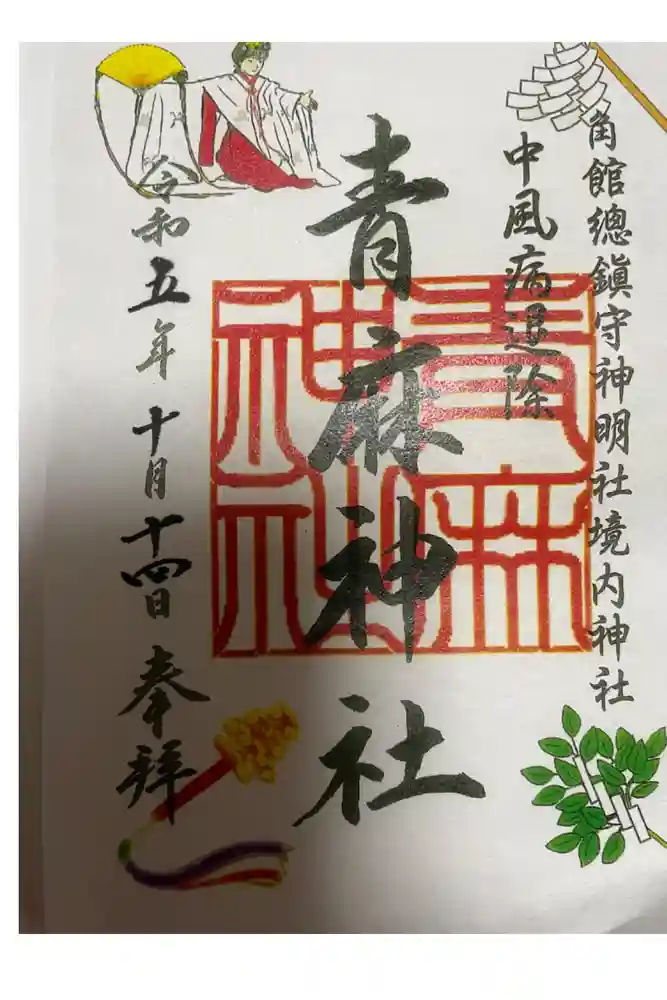 角館總鎮守神明社境内神社
中風病退除
青麻神社
青麻神社
令和五年十月十四日奉拜